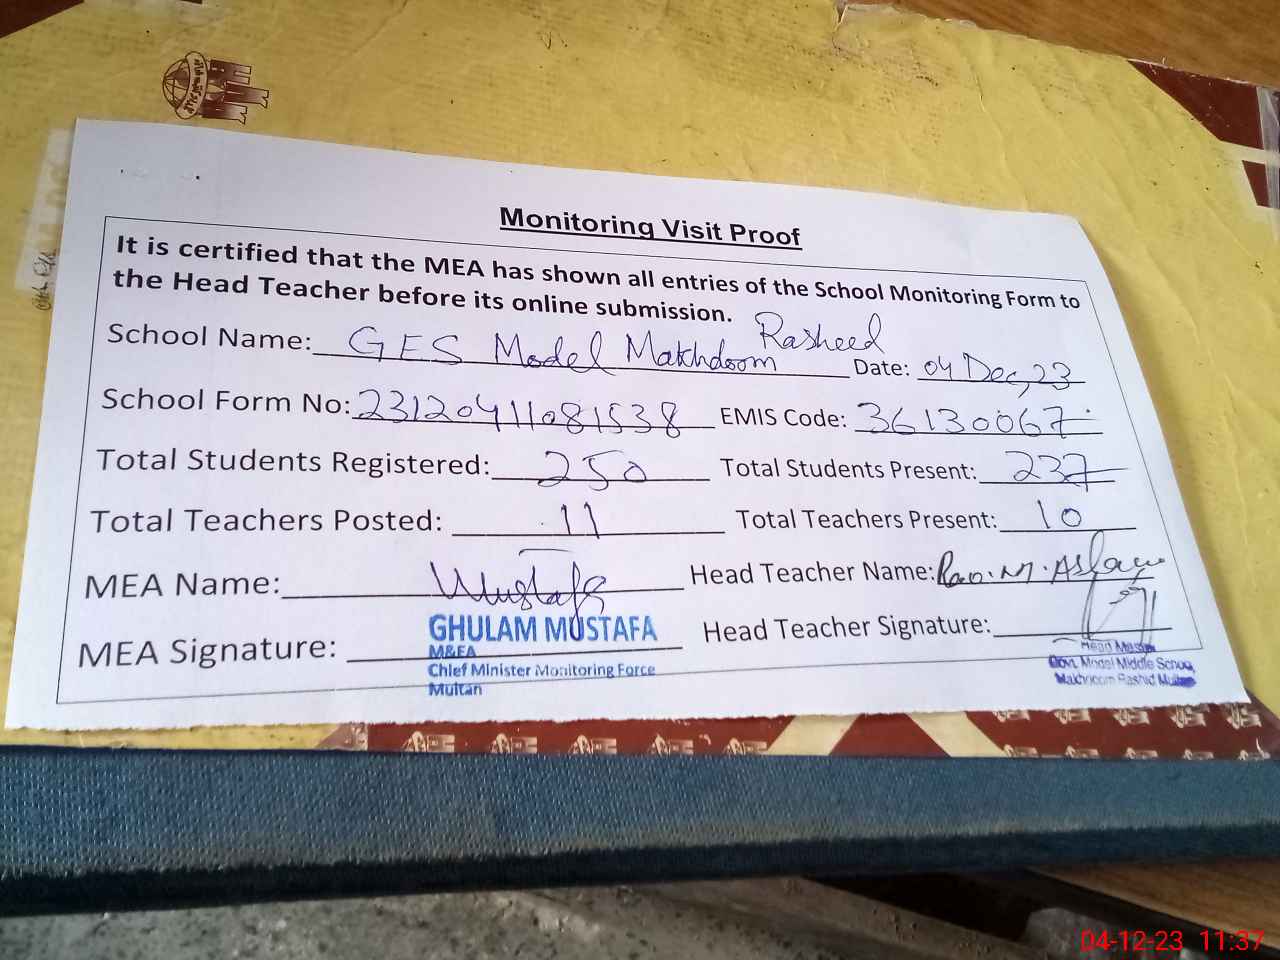 Monitoring Visit Proof
It is certified that the MEA has shown all entries of the School Monitoring Form to
the Head Teacher before its online submission.
School Name: GES Model Makhdoom Rasheed Date: 04 Dec, 23
School Form No: 23120411081538 EMIS Code: 36130067
Total Students Registered: 250 Total Students Present: 237
Total Teachers Posted: 11 Total Teachers Present: 10
MEA Name: Mustafa Head Teacher Name: Rao. M. Aslam
MEA Signature: Head Teacher Signature:
GHULAM MUSTAFA
M&EA
Chief Minister Monitoring Force
Multan
Head Master
Govt. Model Middle School,
Makhdoom Rashid Multan
04-12-23 11:37